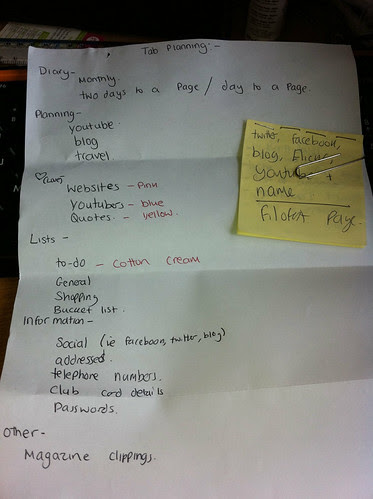 Tab Planning:-
Diary-
Monthly.
two days to a page / day to a page.
Planning-
youtube
blog
travel
websites - Pink
Youtubers - blue
Quotes. - yellow.
Lists -
to-do - cotton cream
General
Shopping
Bucket list.
Information-
Social (ie facebook, twitter, blog)
addresses.
telephone numbers.
Club card details
Passwords.
Other-
Magazine clippings.
twitter, facebook,
blog, Flickr,
youtube +
name
filofax page.